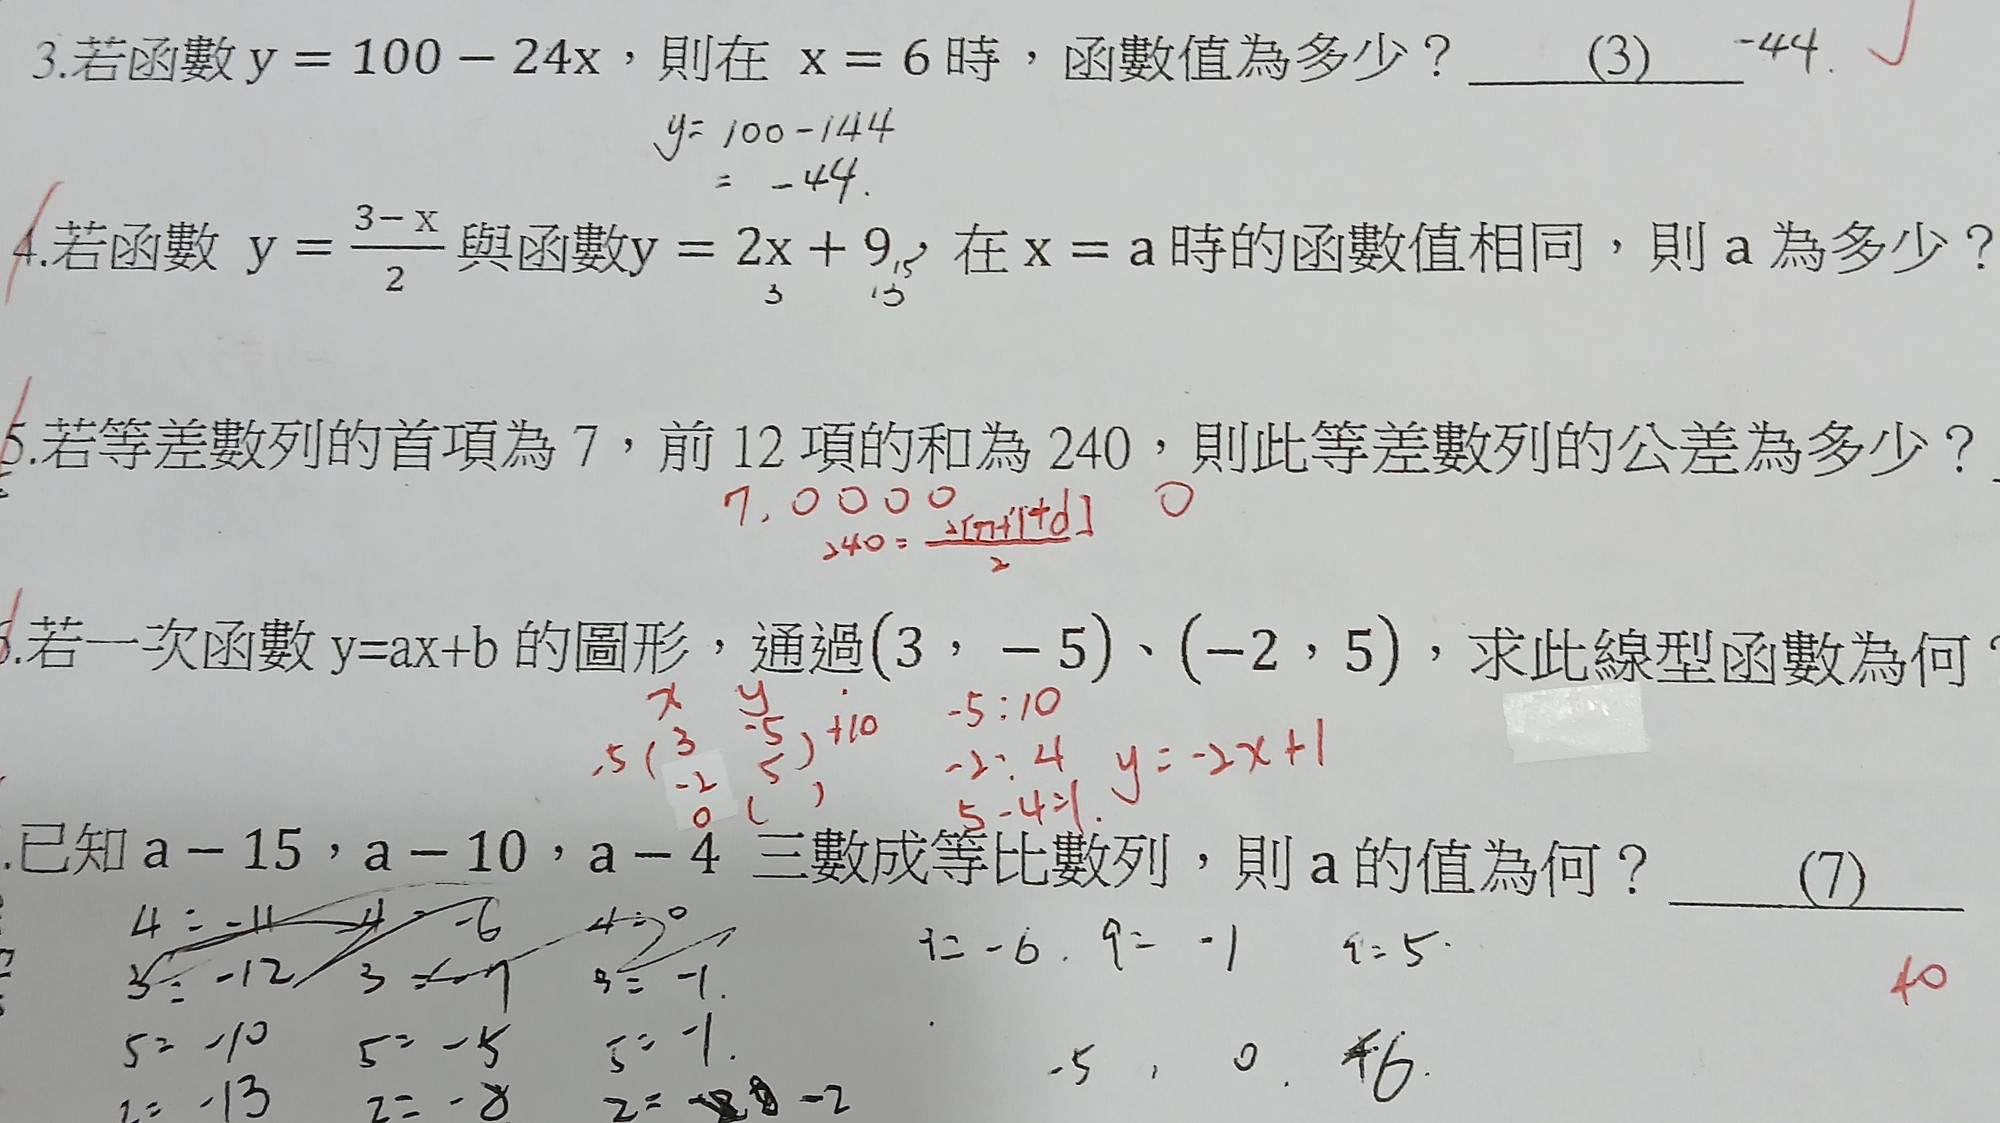 3.若函數 y = 100 − 24x，則在 x = 6 時，函數值為多少？ (3) -44.
y= 100-144
= -44.
4.若函數 y = (3−x)/2 與函數y = 2x + 9，在 x = a 時的函數值相同，則 a 為多少？
3
5.若等差數列的首項為 7，前 12 項的和為 240，則此等差數列的公差為多少？
7, 0 0 0 0 0
240 =
2
.若一次函數 y=ax+b 的圖形，通過(3，−5)、(−2，5)，求此線型函數為何？
x y -5:10
3 -5 +10 -2:4 y=-2x+1
-2 5
0 ( ) 5-4=1.
.已知 a − 15，a − 10，a − 4 三數成等比數列，則 a 的值為何？ (7)
4= -11 4= -6 4=0 -6. 9= -1 5.
3= -12 3= -7 3= -1. 40
5= -10 5= -5 5= -1. -5, 0. 6.
2= -13 2= -8 2= -2